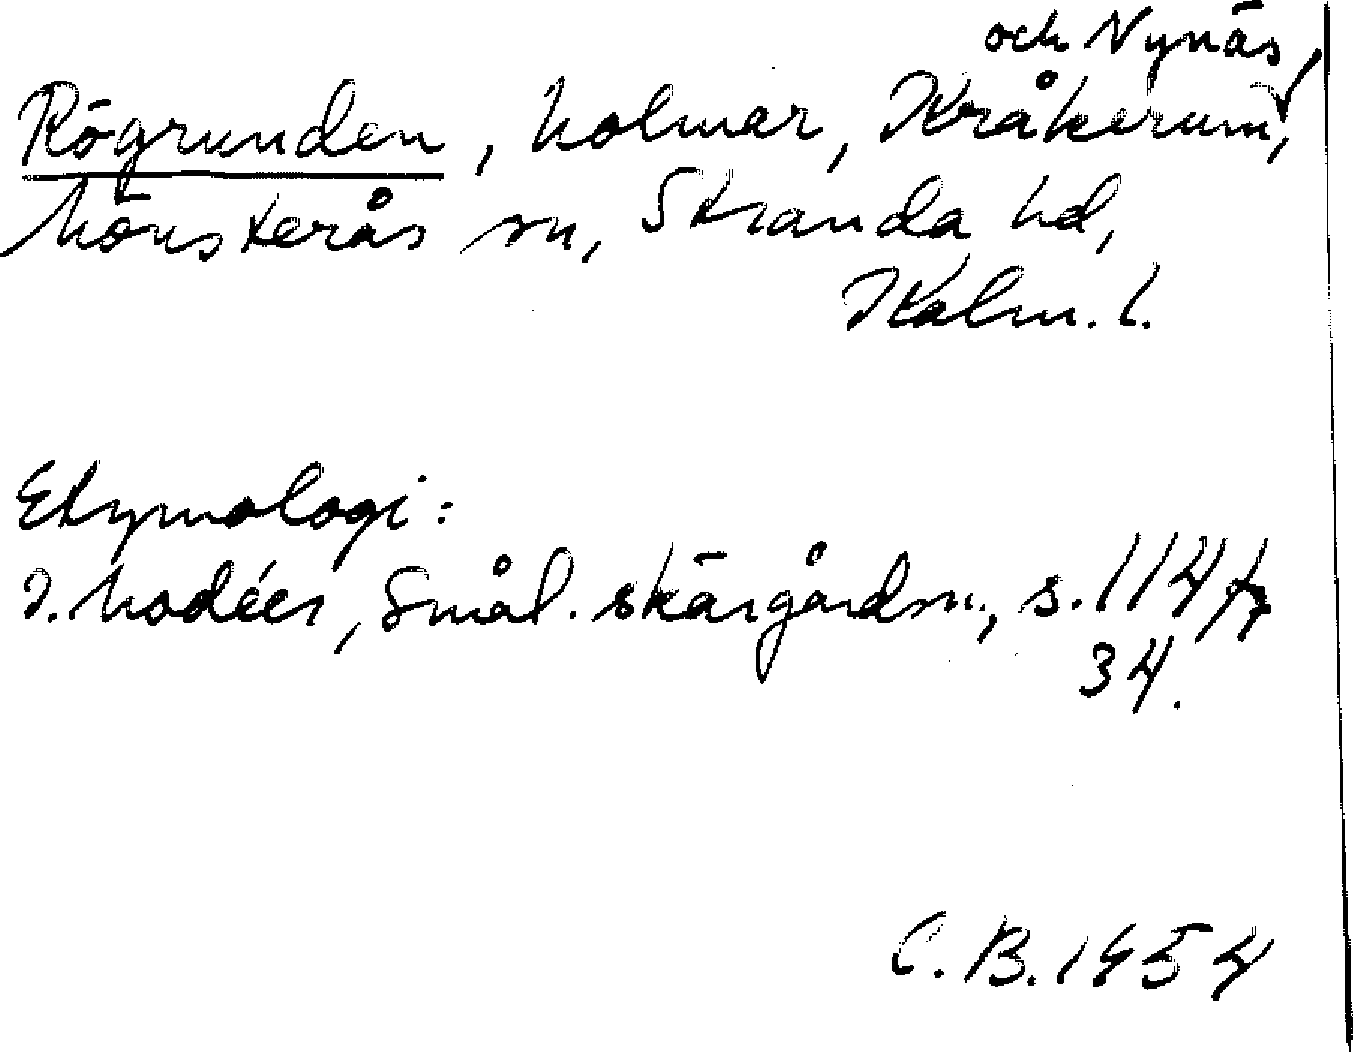 och Nynäs
Rögrunden, holmar, Kråkerum,
Mönsterås sn, Stranda hd,
Kalm. l.
Etymologi:
I. Modéer, Smål. skärgårdsn., s. 114 f,
34.
C. B. 1954